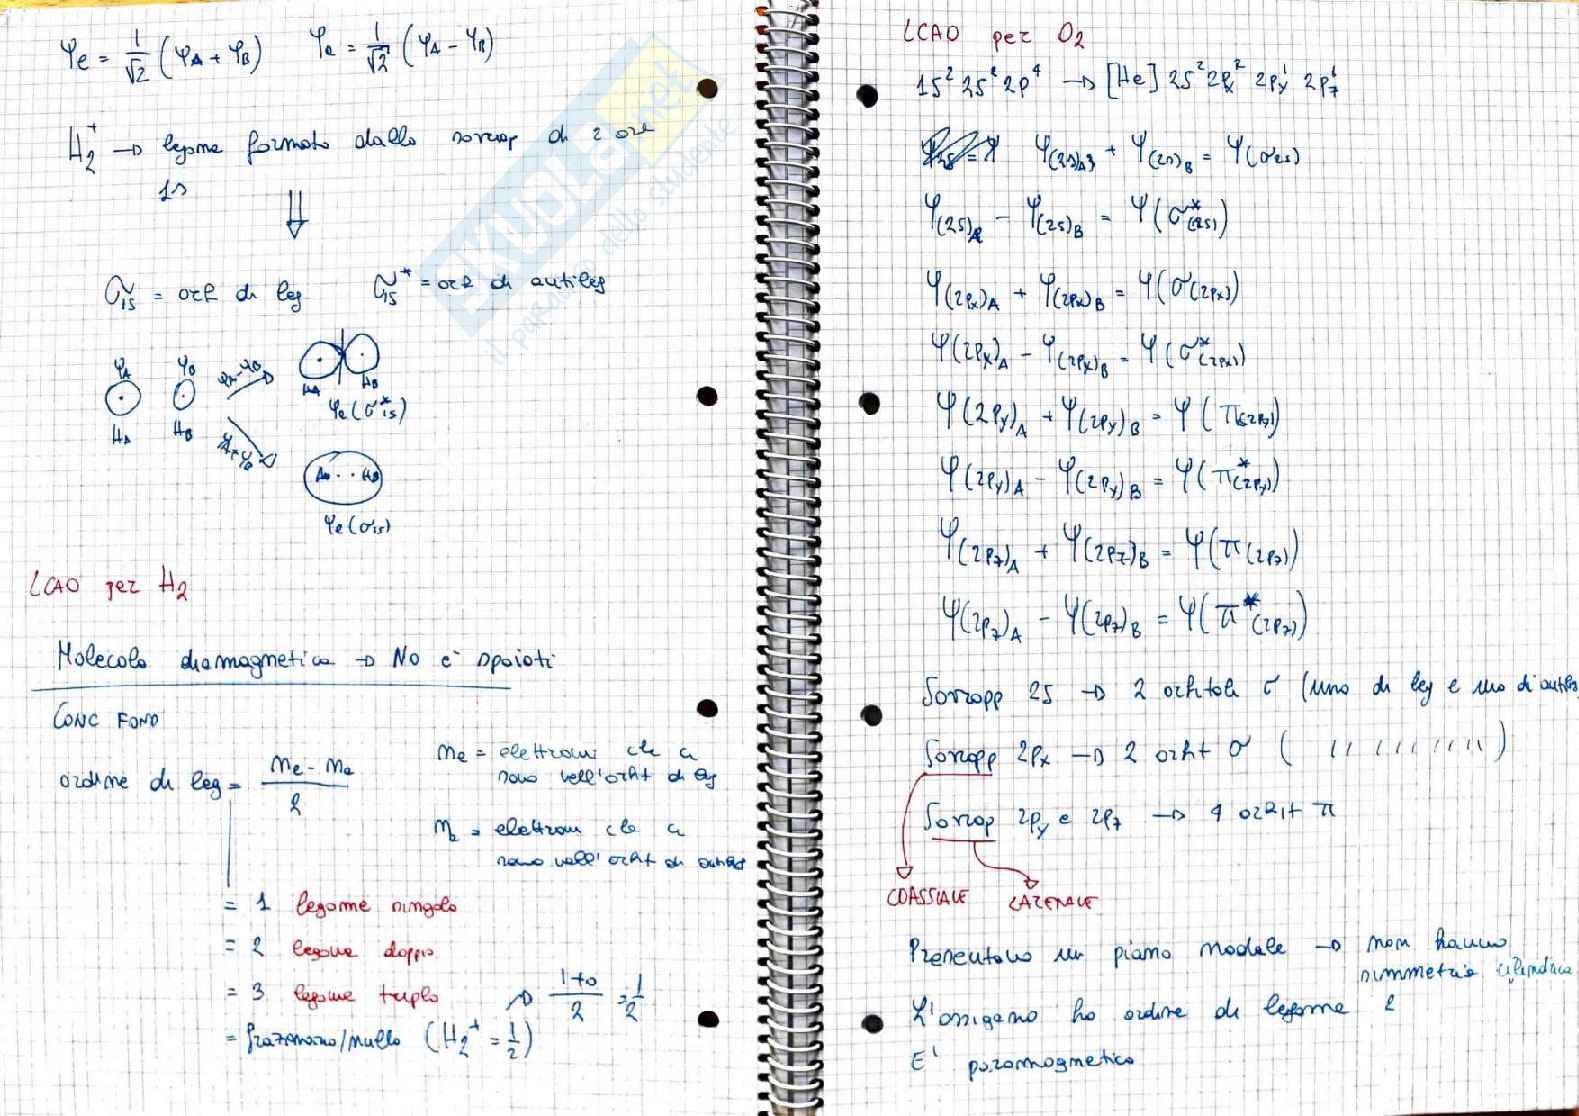 φe = 1/√2 (φA + φB)   φe = 1/√2 (φA - φB)
H2+ → legame formato dalla sovrap di 2 orb
1s
⇓
σ1s = orb di leg   σ*1s = orb di antileg
φA φB φA-φB
HA HB
HA HB
φe(σ*1s)
φA+φB
HA · · HB
φe(σ1s)
LCAO per H2
Molecola diamagnetica → No e- spaiati
CONC FOND
ordine di leg = ne - na / 2
ne = elettroni che ci
sono nell'orbit di leg
na = elettroni che ci
sono nell'orbit di antileg
= 1 legame singolo
= 2 legame doppio
= 3 legame triplo → 1+0/2 = 1/2
= frazionario/nullo (H2+ = 1/2)
LCAO per O2
1s² 2s² 2p⁴ → [He] 2s² 2px² 2py¹ 2pz¹
Ψ(2s)A + Ψ(2s)B = Ψ(σ2s)
Ψ(2s)A - Ψ(2s)B = Ψ(σ*(2s))
Ψ(2px)A + Ψ(2px)B = Ψ(σ(2px))
Ψ(2px)A - Ψ(2px)B = Ψ(σ*(2px))
Ψ(2py)A + Ψ(2py)B = Ψ(π(2py))
Ψ(2py)A - Ψ(2py)B = Ψ(π*(2py))
Ψ(2pz)A + Ψ(2pz)B = Ψ(π(2pz))
Ψ(2pz)A - Ψ(2pz)B = Ψ(π*(2pz))
Sovrapp 2s → 2 orbitali σ (uno di leg e uno di antileg
Sovrapp 2px → 2 orbit σ ( // // // // // )
Sovrap 2py e 2pz → 4 orbit π
COASSIALE LATERALE
Presentano un piano nodale → non hanno
simmetria cilindrica
L'ossigeno ha ordine di legame 2
E' paramagnetico
SKUOLA.net
il paradiso dello studente